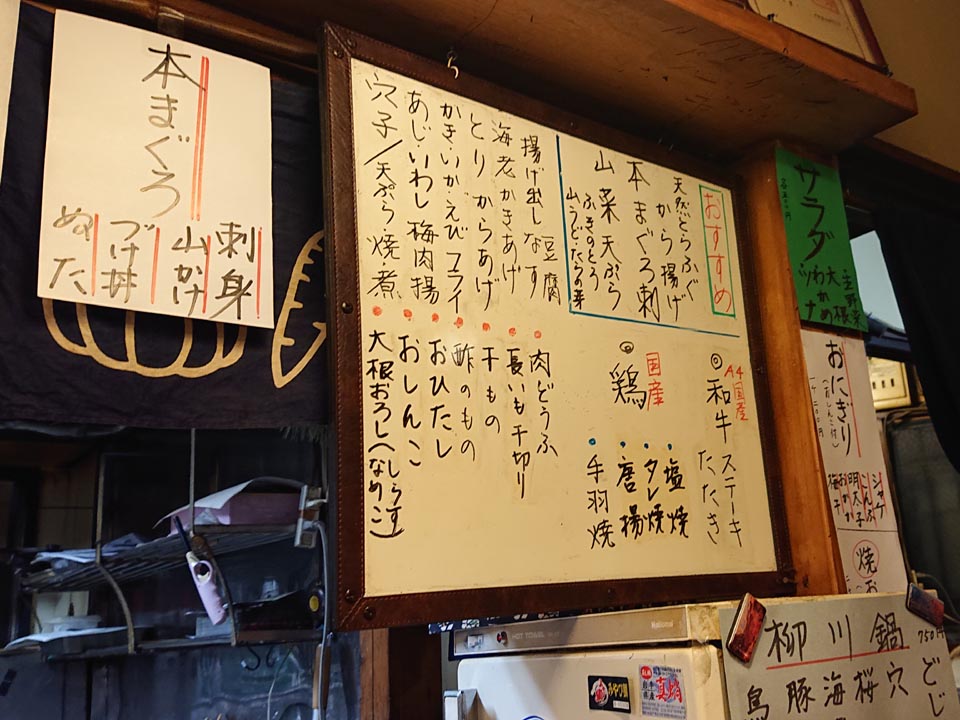 本まぐろ
刺身
山かけ
づけ丼
ぬた
おすすめ
天然とらふぐ
から揚げ
本まぐろ刺
山菜天ぷら
ふきのとう
山うどたらの芽
揚げ出しなす
豆腐
海老かきあげ
とりからあげ
かき・いか・えびフライ
あじ・いわし梅肉揚
穴子/天ぷら・焼・煮
◎和牛
A4国産
ステーキ
たたき
◎鶏
国産
・塩焼
・タレ焼
・唐揚
・手羽焼
肉どうふ
長いも千切り
干もの
酢のもの
おひたし
おしんこ
大根おろし(しらす)
(なめこ)
サラダ
生野菜
大根
わかめ
ツナ
おにぎり
シャケ
こんぶ
明太子
おかか
梅干
焼お
柳川鍋
750円
どじ
穴
桜
海
豚
鳥
HOT TOWEL
National